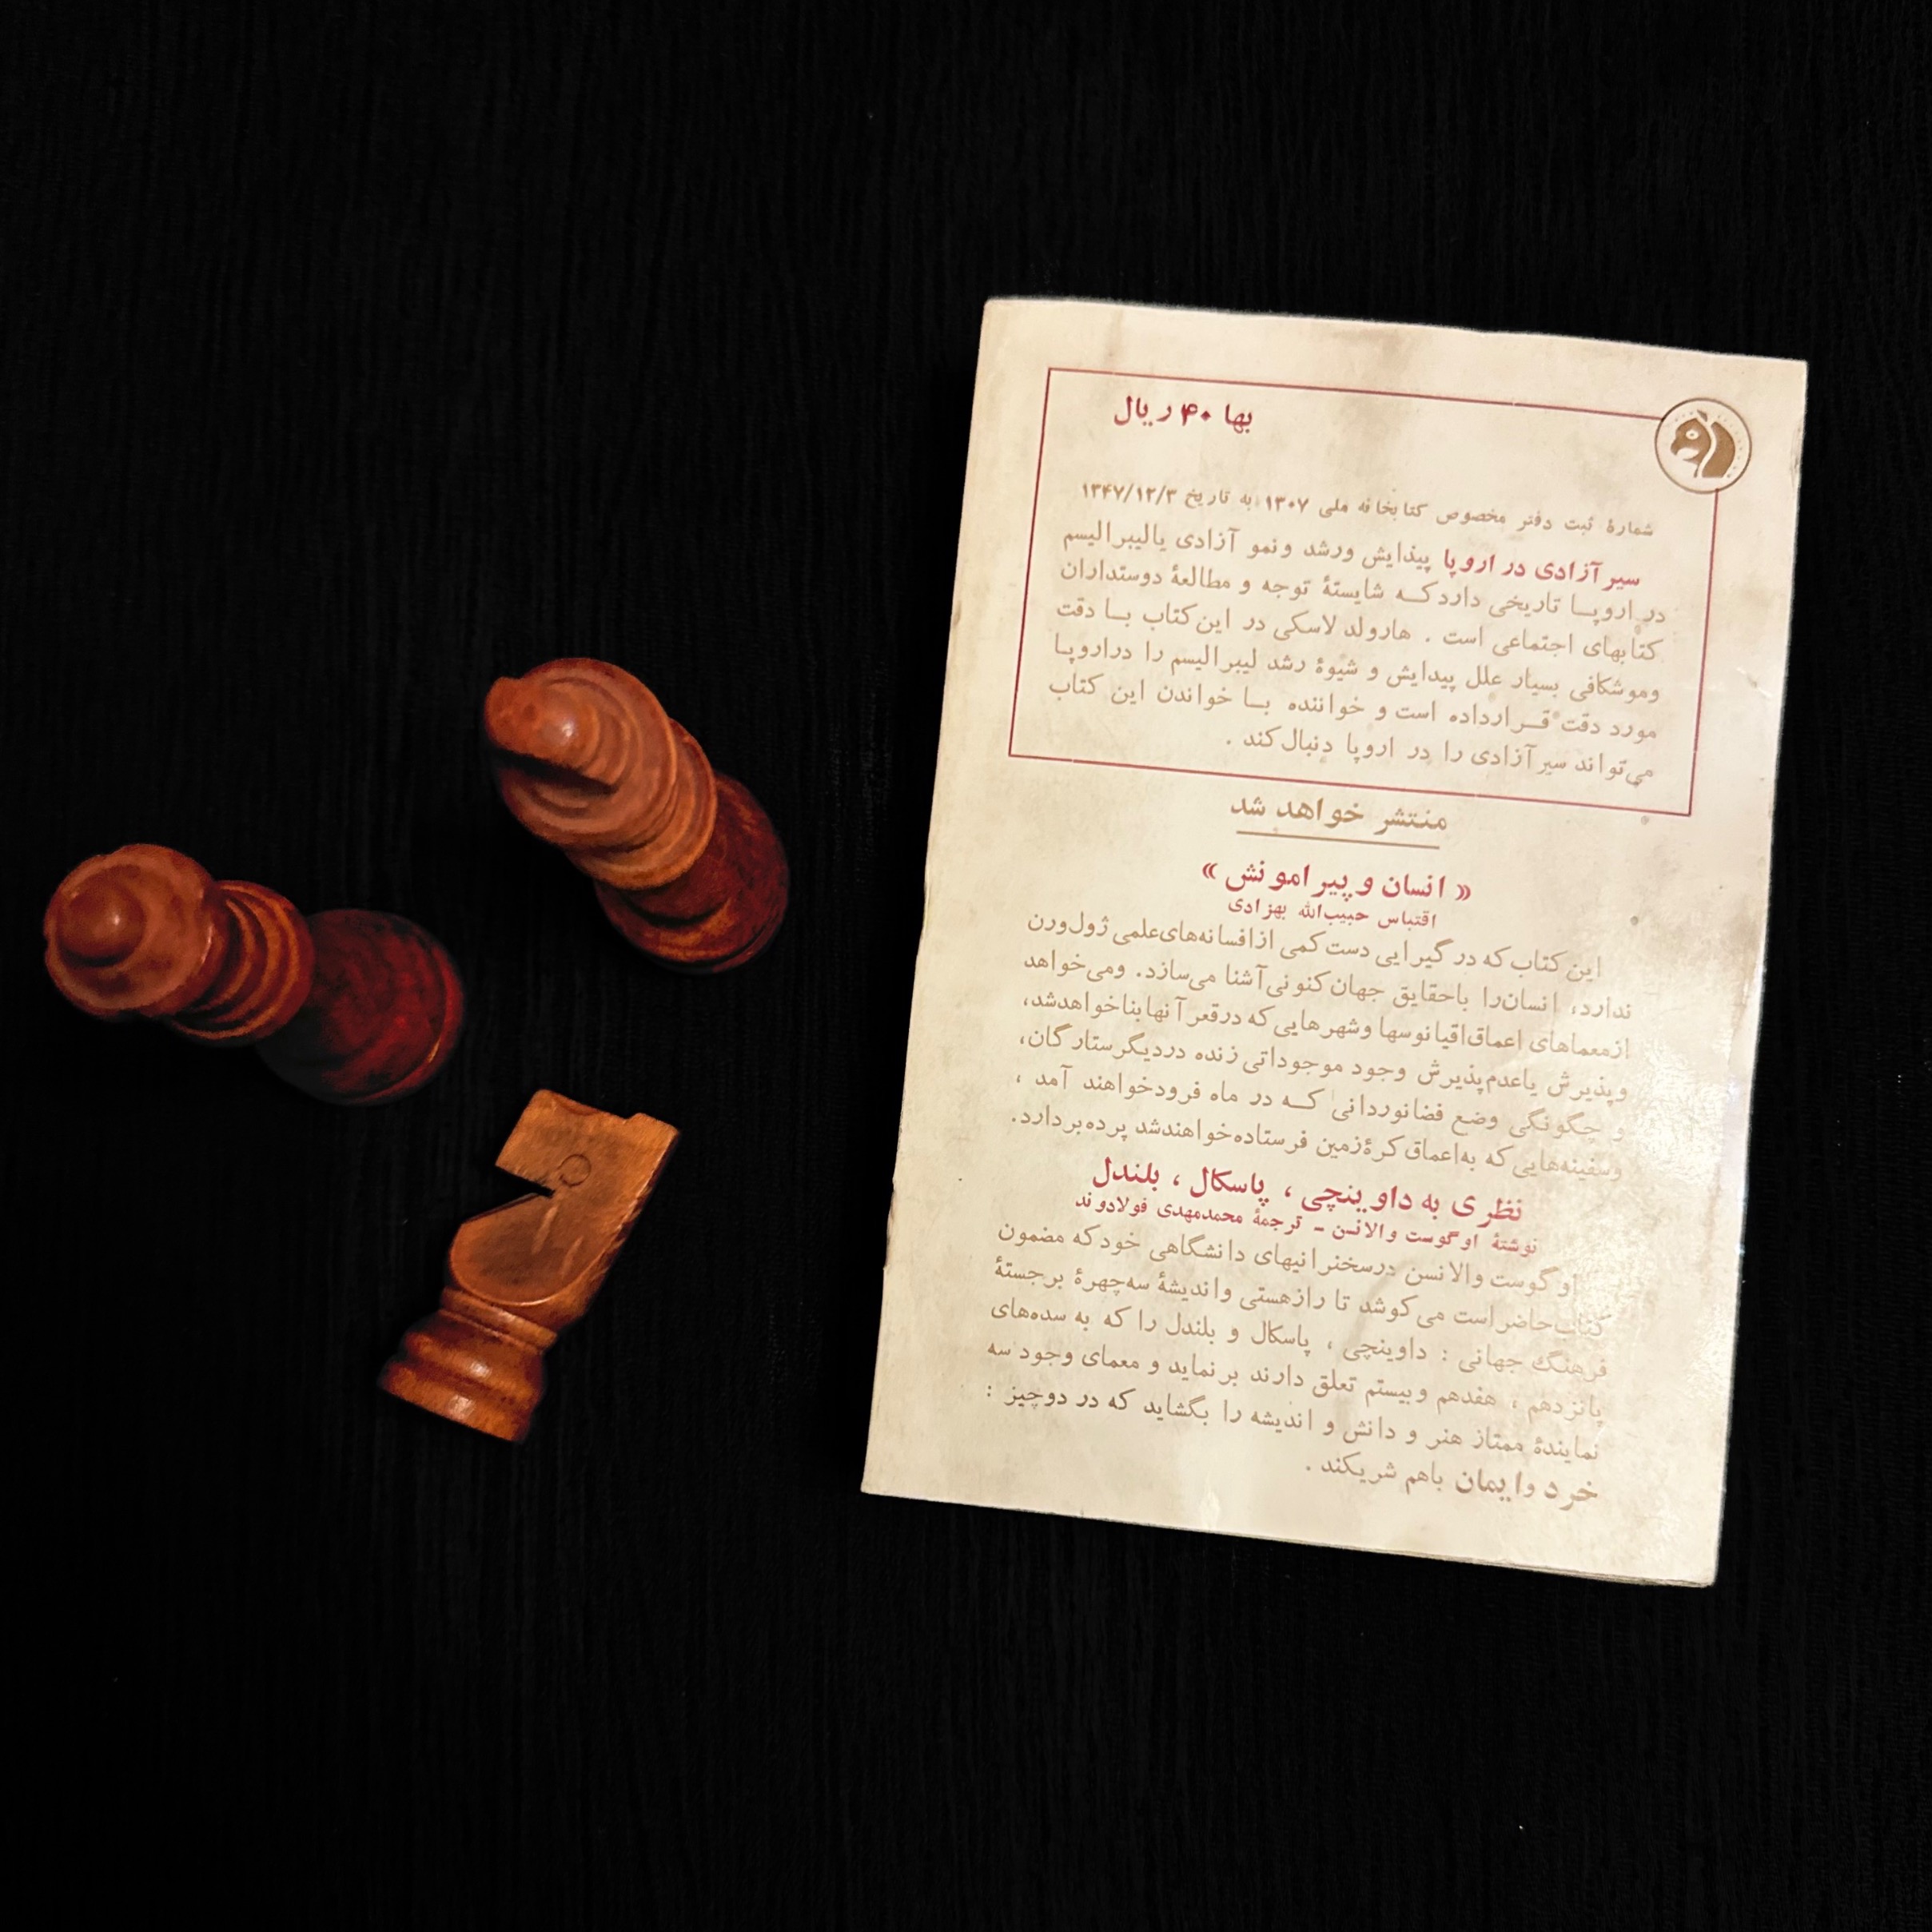 بها ۴۰ ریال
شمارهٔ ثبت دفتر مخصوص کتابخانه ملی ۱۳۰۷ به تاریخ ۱۳۴۷/۱۲/۳
سیر آزادی در اروپا پیدایش ورشد ونمو آزادی یالیبرالیسم
در اروپا تاریخی دارد که شایستهٔ توجه و مطالعهٔ دوستداران
کتابهای اجتماعی است . هارولد لاسکی در این کتاب با دقت
وموشکافی بسیار علل پیدایش و شیوهٔ رشد لیبرالیسم را دراروپا
مورد دقت قرارداده است و خواننده با خواندن این کتاب
می‌تواند سیر آزادی را در اروپا دنبال کند .
منتشر خواهد شد
« انسان و پیرامونش »
اقتباس حبیب‌الله بهزادی
این کتاب که در گیرایی دست کمی از افسانه‌های علمی ژول‌ورن
ندارد، انسان را باحقایق جهان کنونی آشنا می‌سازد. ومی‌خواهد
ازمعماهای اعماق اقیانوسها وشهرهایی که درقعر آنها بنا خواهد شد،
وپذیرش یاعدم پذیرش وجود موجوداتی زنده دردیگر ستارگان،
و چگونگی وضع فضانوردانی که در ماه فرود خواهند آمد ،
وسفینه‌هایی که به‌اعماق کرهٔ زمین فرستاده خواهند شد پرده بردارد.
نظری به داوینچی ، پاسکال ، بلندل
نوشتهٔ اوگوست والانسن - ترجمهٔ محمدمهدی فولادوند
اوگوست والانسن درسخنرانیهای دانشگاهی خود که مضمون
کتاب حاضر است می کوشد تا راز هستی و اندیشهٔ سه چهرهٔ برجستهٔ
فرهنگ جهانی : داوینچی ، پاسکال و بلندل را که به سده‌های
پانزدهم ، هفدهم وبیستم تعلق دارند برنماید و معمای وجود سه
نمایندهٔ ممتاز هنر و دانش و اندیشه را بگشاید که در دوچیز :
خرد وایمان باهم شریکند .